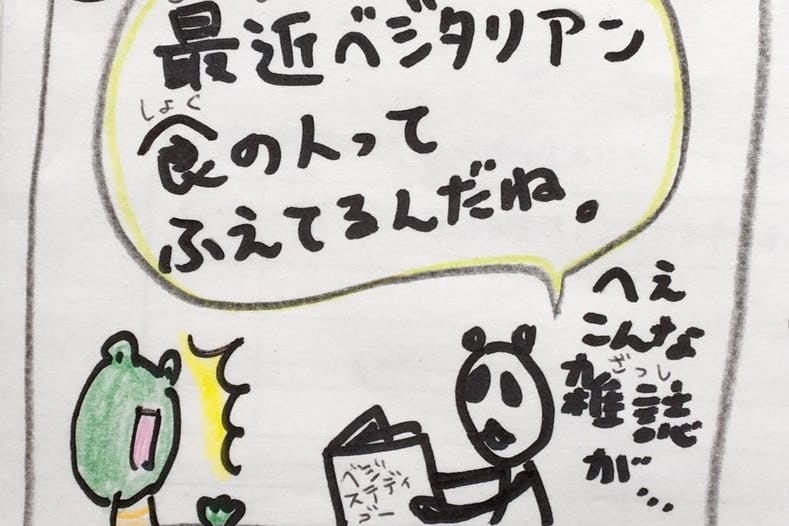 最近ベジタリアン
しょく
食の人って
ふえてるんだね。
へえ
こんな
ざっし
雑誌
が…
ベジ
スティ
ゴー